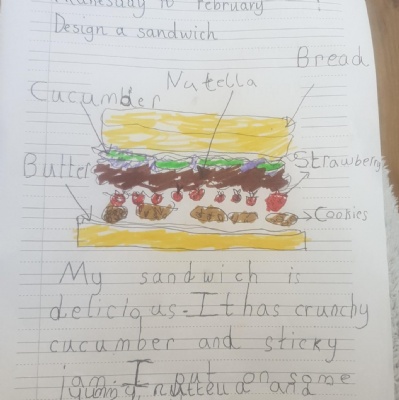 February
Design a sandwich
Bread
Nutella
Cucumber
Butter
Strawberry
Cookies
My sandwich is
delicious. It has crunchy
cucumber and sticky
jam. I put on some
and